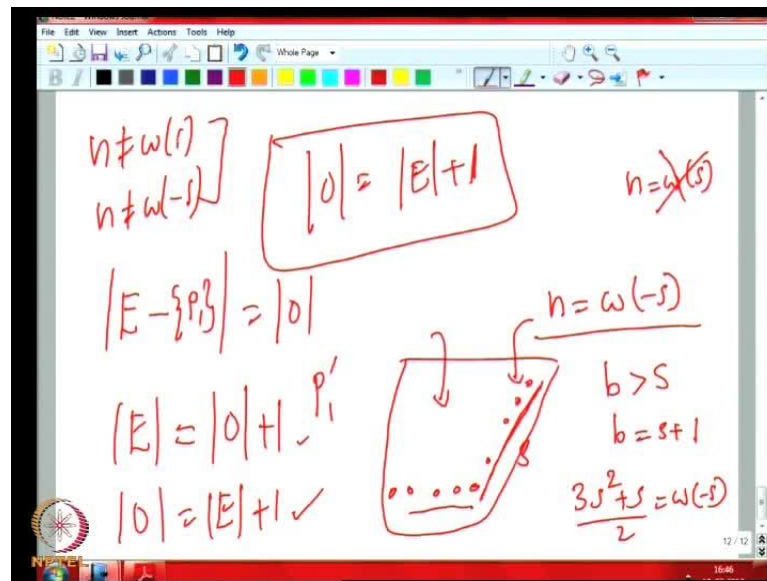 File Edit View Insert Actions Tools Help
Whole Page
B I
n ≠ ω(s)
n ≠ ω(-s)
|O| = |E|+1
n = ω(s)
|E - {P₁}| = |O|
n = ω(-s)
|E| = |O|+1 ✓ P₁'
b > s
b = s+1
s
|O| = |E|+1 ✓
3s²+s/2 = ω(-s)
12 / 12
NPTEL
16:46